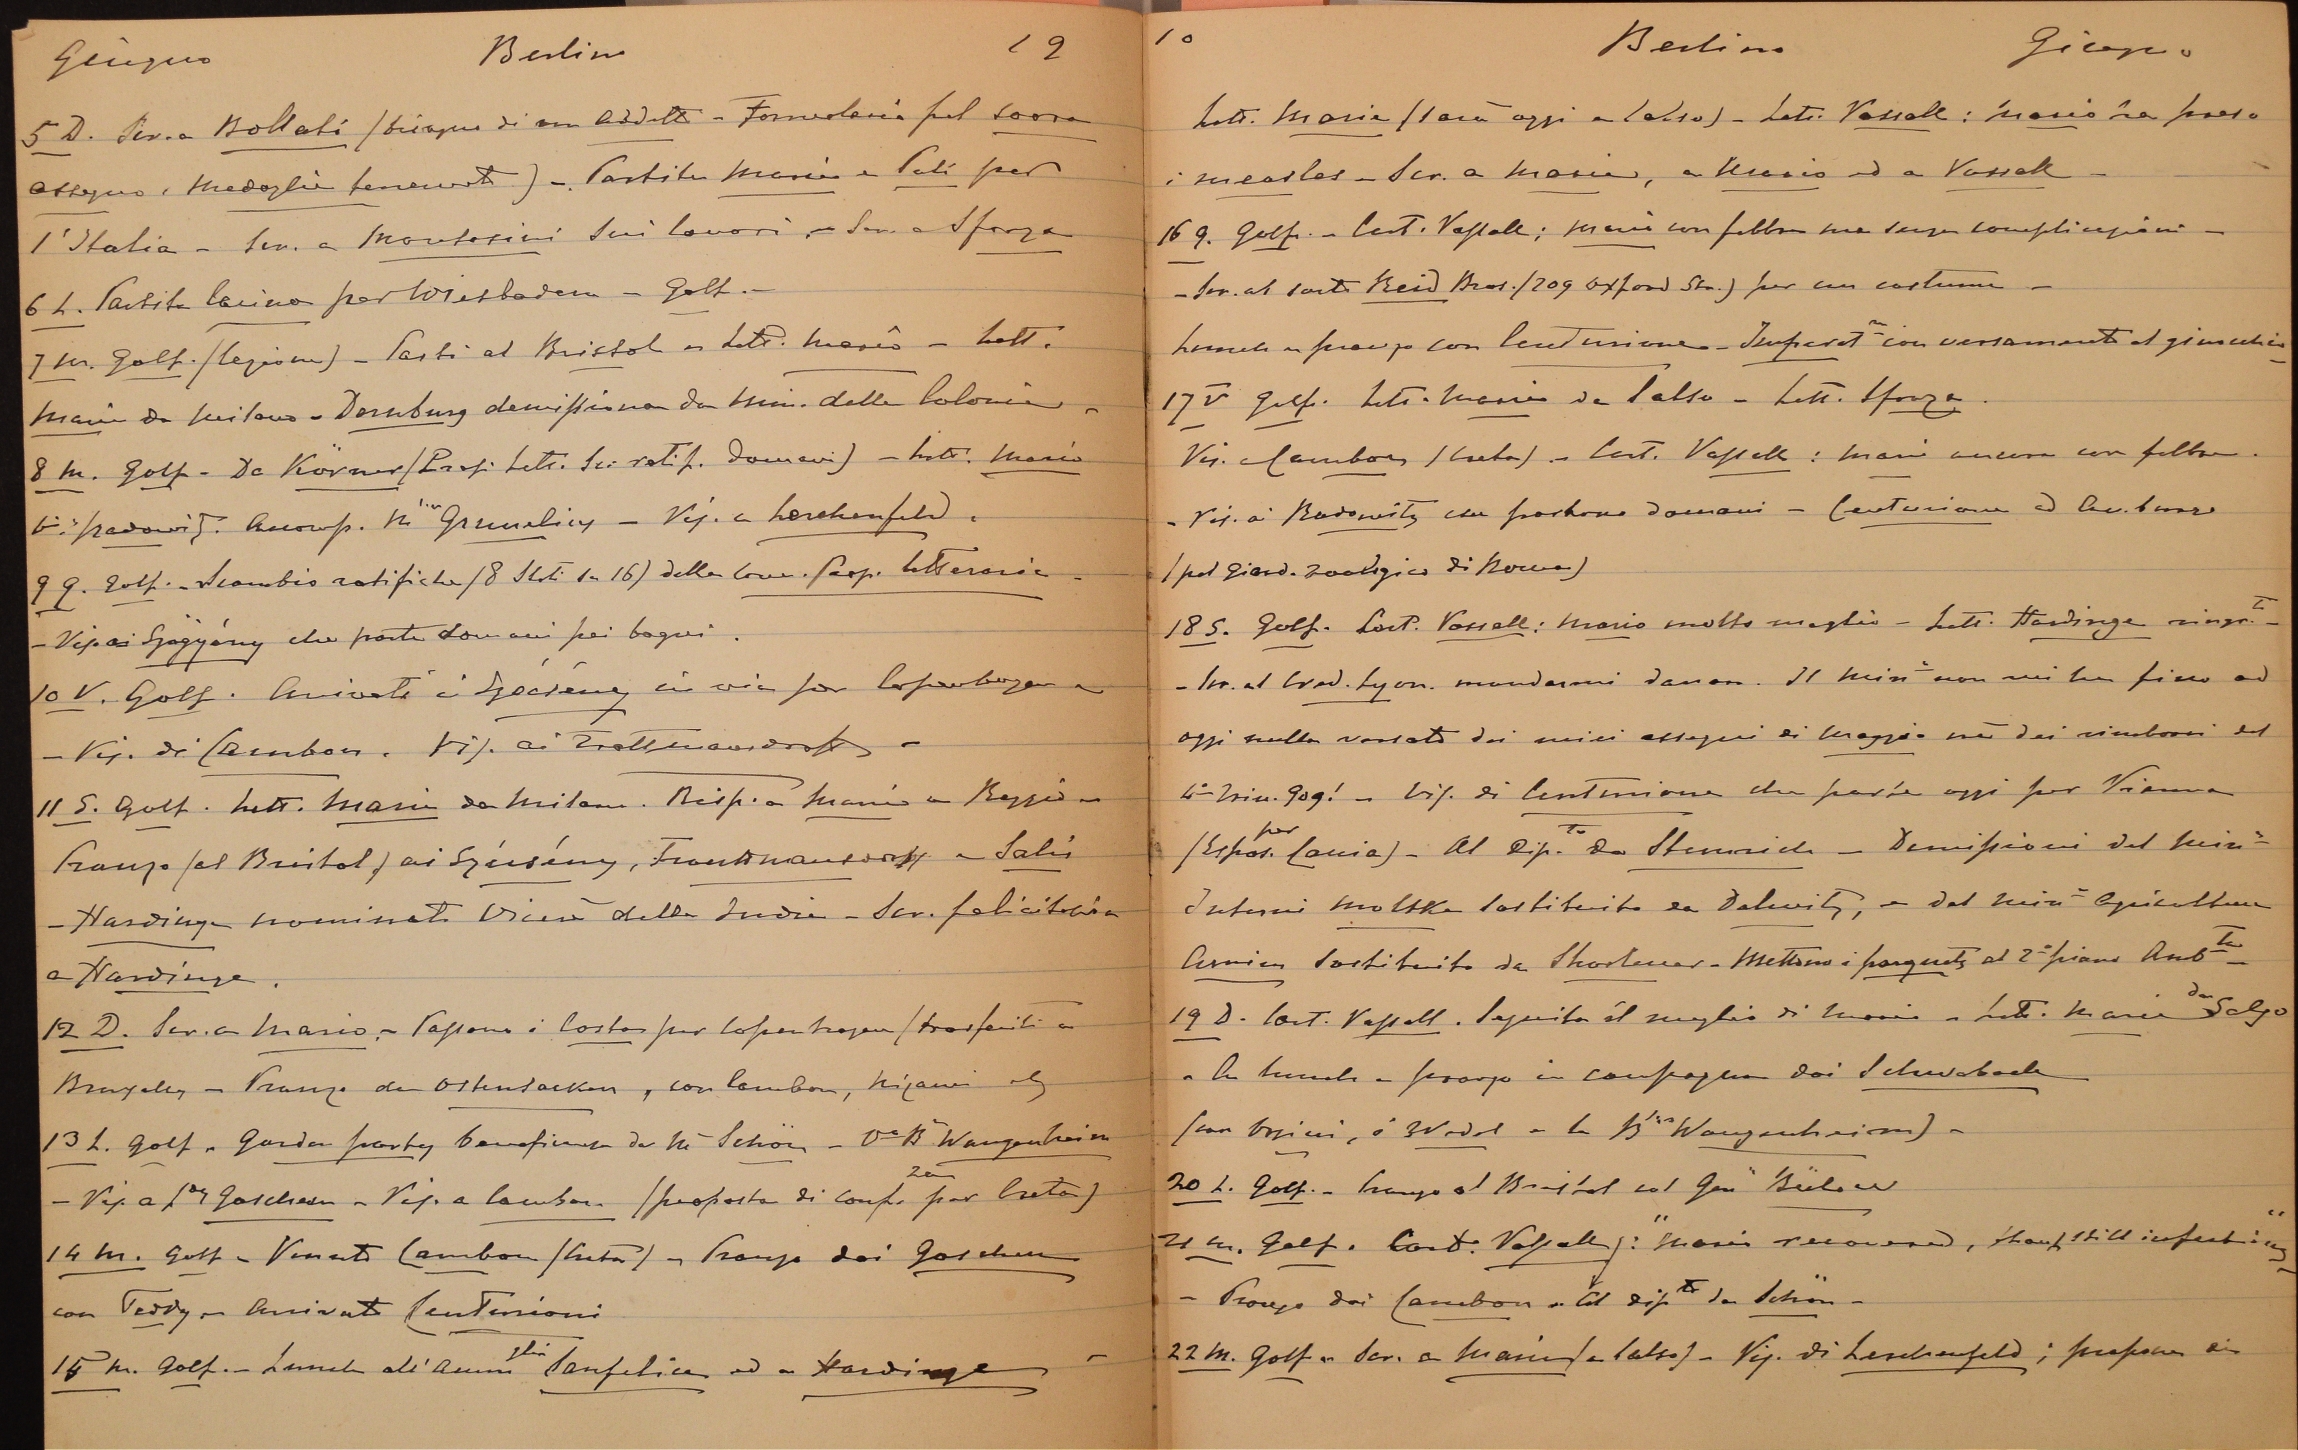 Giugno Berlino 19
5 D. Scr. a Bollati (bisogno di un addetto - Formolario pel sopra
assegno, medaglie terremoto) - Partita Maria e Poli per
l'Italia - Scr. a Montosini sui lavori - Scr. a Sforza
6 L. Partita Lanina per Wiesbaden - Golf. -
7 M. Golf. (lezione) - Pasti al Bristol - Lett. Mario - Lett.
Maria da Milano - Dernburg demissiona da Min. delle Colonie -
8 M. Golf - Da Körner (Prof. lett. Sc. ratif. domani) - Lett. Mario
Vis. Radowitz. Accomp. Grunelius - Vis. a Lerchenfeld.
9 G. Golf. - Scambio ratifiche (8 Stati su 16) della Conv. Prop. letteraria -
- Vis. ai Szögyény che parte domani pei bagni.
10 V. Golf. Arrivati i Szécsény in via per Copenhagen -
- Vis. di Cambon. Vis. ai Trattmansdorff -
11 S. Golf. Lett. Maria da Milano. Risp. a Maria a Reggio -
Pranzo (al Bristol) ai Szécsény, Trauttmansdorff e Salis
- Hardinge nominato Viceré delle Indie - Scr. felicitazioni
a Hardinge.
12 D. Scr. a Mario - Passano i Costa per Copenhagen (trasferiti a
Bruxelles - Pranzo da Ostensacken, con Cambon, Nizami etc
13 L. Golf - Garden party beneficenza da Me Schön - Va Bna Wangenheim
- Vis. a Goschen - Vis. a Cambon (proposta di confza per Creta)
14 M. Golf - Venuto Cambon (Creta) - Pranzo dai Goschen
con Teddy - Arrivato Centurioni
15 M. Golf. - Lunch all'Ammglio Sanfelice ed a Hardinge -
10 Berlino Giugno
Lett. Maria (sarà oggi a Salso) - Lett. Vassall: Mario ha preso
i measles - Scr. a Maria, a Mario ed a Vassall -
16 G. Golf. - Cart. Vassall; Mario con febbre ma senza complicazioni -
- Scr. al sarto Reid Bros. (209 Oxford Str.) per un costume -
Lunch e pranzo con Centurione - con versamento al ginocchio -
17 V Golf. Lett. Maria da Salso - Lett. Sforza.
Vis. a Cambon (Creta) - Cart. Vassall: Mario ancora con febbre.
- Vis. ai Radowitz che partono domani - Centurione ad Amburgo
(pel Giard. zoologico di Roma)
18 S. Golf. Cart. Vassall: Mario molto meglio - Lett. Hardinge ringr.ti -
- Scr. al Cred. Lyon. mandarmi danaro. Il Minro non mi ha fino ad
oggi nulla versato dei miei assegni di Maggio né dei rimborsi del
4o Trim. 909! - Vis. di Centurione che parte oggi per Vienna
(Espos. per Caccia) - Al Dip.to da Stemrich - Demissioni del Minro
Interni Moltke sostituito da Dalwitz, e del Minro Agricoltura
Arnim sostituito da Shorlemer - Mettono i parquets al 2o piano Ambta -
19 D. Cart. Vassall. Seguita il meglio di Mario - Lett. Maria da Salso
- A lunch e pranzo in campagna dai Schwabach
(con Orsini, i Wedel e la Bna Wangenheim) -
20 L. Golf. - Pranzo al Bristol col Gen Bülow
21 M. Golf. Cart. Vassall: "Mario recovered, though still infectious"
- Pranzo dai Cambon - Al dipto da Schön -
22 M. Golf - Scr. a Maria (a Salso) - Vis. di Lerchenfeld; propone di